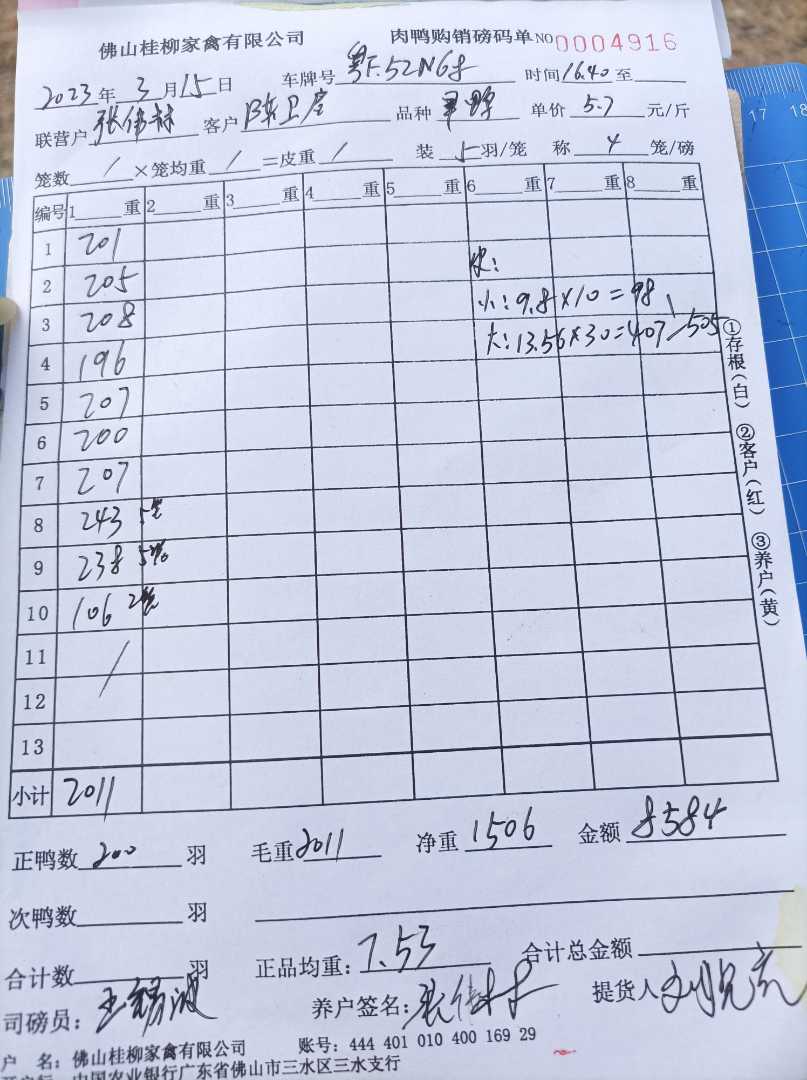 佛山桂柳家禽有限公司 肉鸭购销磅码单 NO 0004916
2023年3月15日 车牌号 粤F.52N68 时间16.40至
联营户 张伟林 客户 陈卫 品种 单价 5.7 元/斤
笼数 / ×笼均重 / =皮重 / 装 5 羽/笼 称 4 笼/磅
编号 1 重 2 重 3 重 4 重 5 重 6 重 7 重 8 重
1 201
2 205 皮:
3 208 小:9.8×10=98
4 196 大:13.56×30=407 505
5 207
6 200
7 207
8 243 5笼
9 238 5笼
10 106 2笼
11 /
12
13
小计 2011
正鸭数 200 羽 毛重 2011 净重 1506 金额 8584
次鸭数 羽
合计数 羽 正品均重: 7.53 合计总金额
司磅员: 养户签名: 提货人
户 名: 佛山桂柳家禽有限公司 账号: 444 401 010 400 169 29
中国农业银行广东省佛山市三水区三水支行
①存根(白) ②客户(红) ③养户(黄)